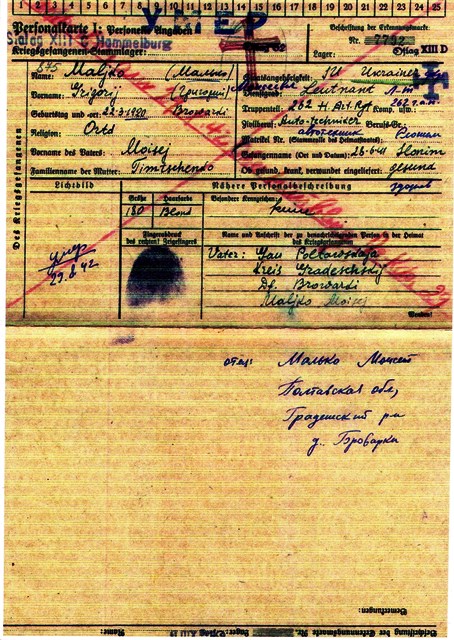 1 2 3 4 5 6 7 8 9 10 11 12 13 14 15 16 17 18 19 20 21 22 23 24 25
УМЕР
Personalkarte I: Personelle Angaben
Beschriftung der Erkennungsmarke
Stalag XIII C Hammelburg
Nr. 7792
Kriegsgefangenen-Stammlager:
Lager: Oflag XIII D
Des Kriegsgefangenen
Name: Maljko (Малько)
Staatsangehörigkeit: SU Ukrainer
Vorname: Grigorij (Григорий)
Dienstgrad: Leutnant Л-т
Geburtstag und -ort: 22.3.1920 Browardi
Truppenteil: 262 H. Art. Rgt Komp. usw.: 262 г.а.п.
Religion: Ortd
Zivilberuf: Auto-techniker Berufs-Gr.:
автотехник
Matrikel Nr. (Stammrolle des Heimatstaates):
Vorname des Vaters: Moisej
Gefangennahme (Ort und Datum): 28-6-41 Slonim
Слоним
Familienname der Mutter: Timtschenko
Ob gesund, krank, verwundet eingeliefert: gesund
здоров
Lichtbild
Nähere Personalbeschreibung
Größe Haarfarbe Besondere Kennzeichen:
180 Blond keine
умер
29.8.42
Fingerabdruck
des rechten Zeigefingers
Name und Anschrift der zu benachrichtigenden Person in der Heimat
des Kriegsgefangenen
Vater: Gau Poltawskaja
Kreis Gradeschskij
Df. Browardi
Maljko Moisej
Wenden!
отец: Малько Моисей
Полтавская обл,
Градешский р-н
д. Броварки
Bemerkungen:
Beschriftung der Erkennungsmarke Nr.
Lager: Oflag XIII D
Name: